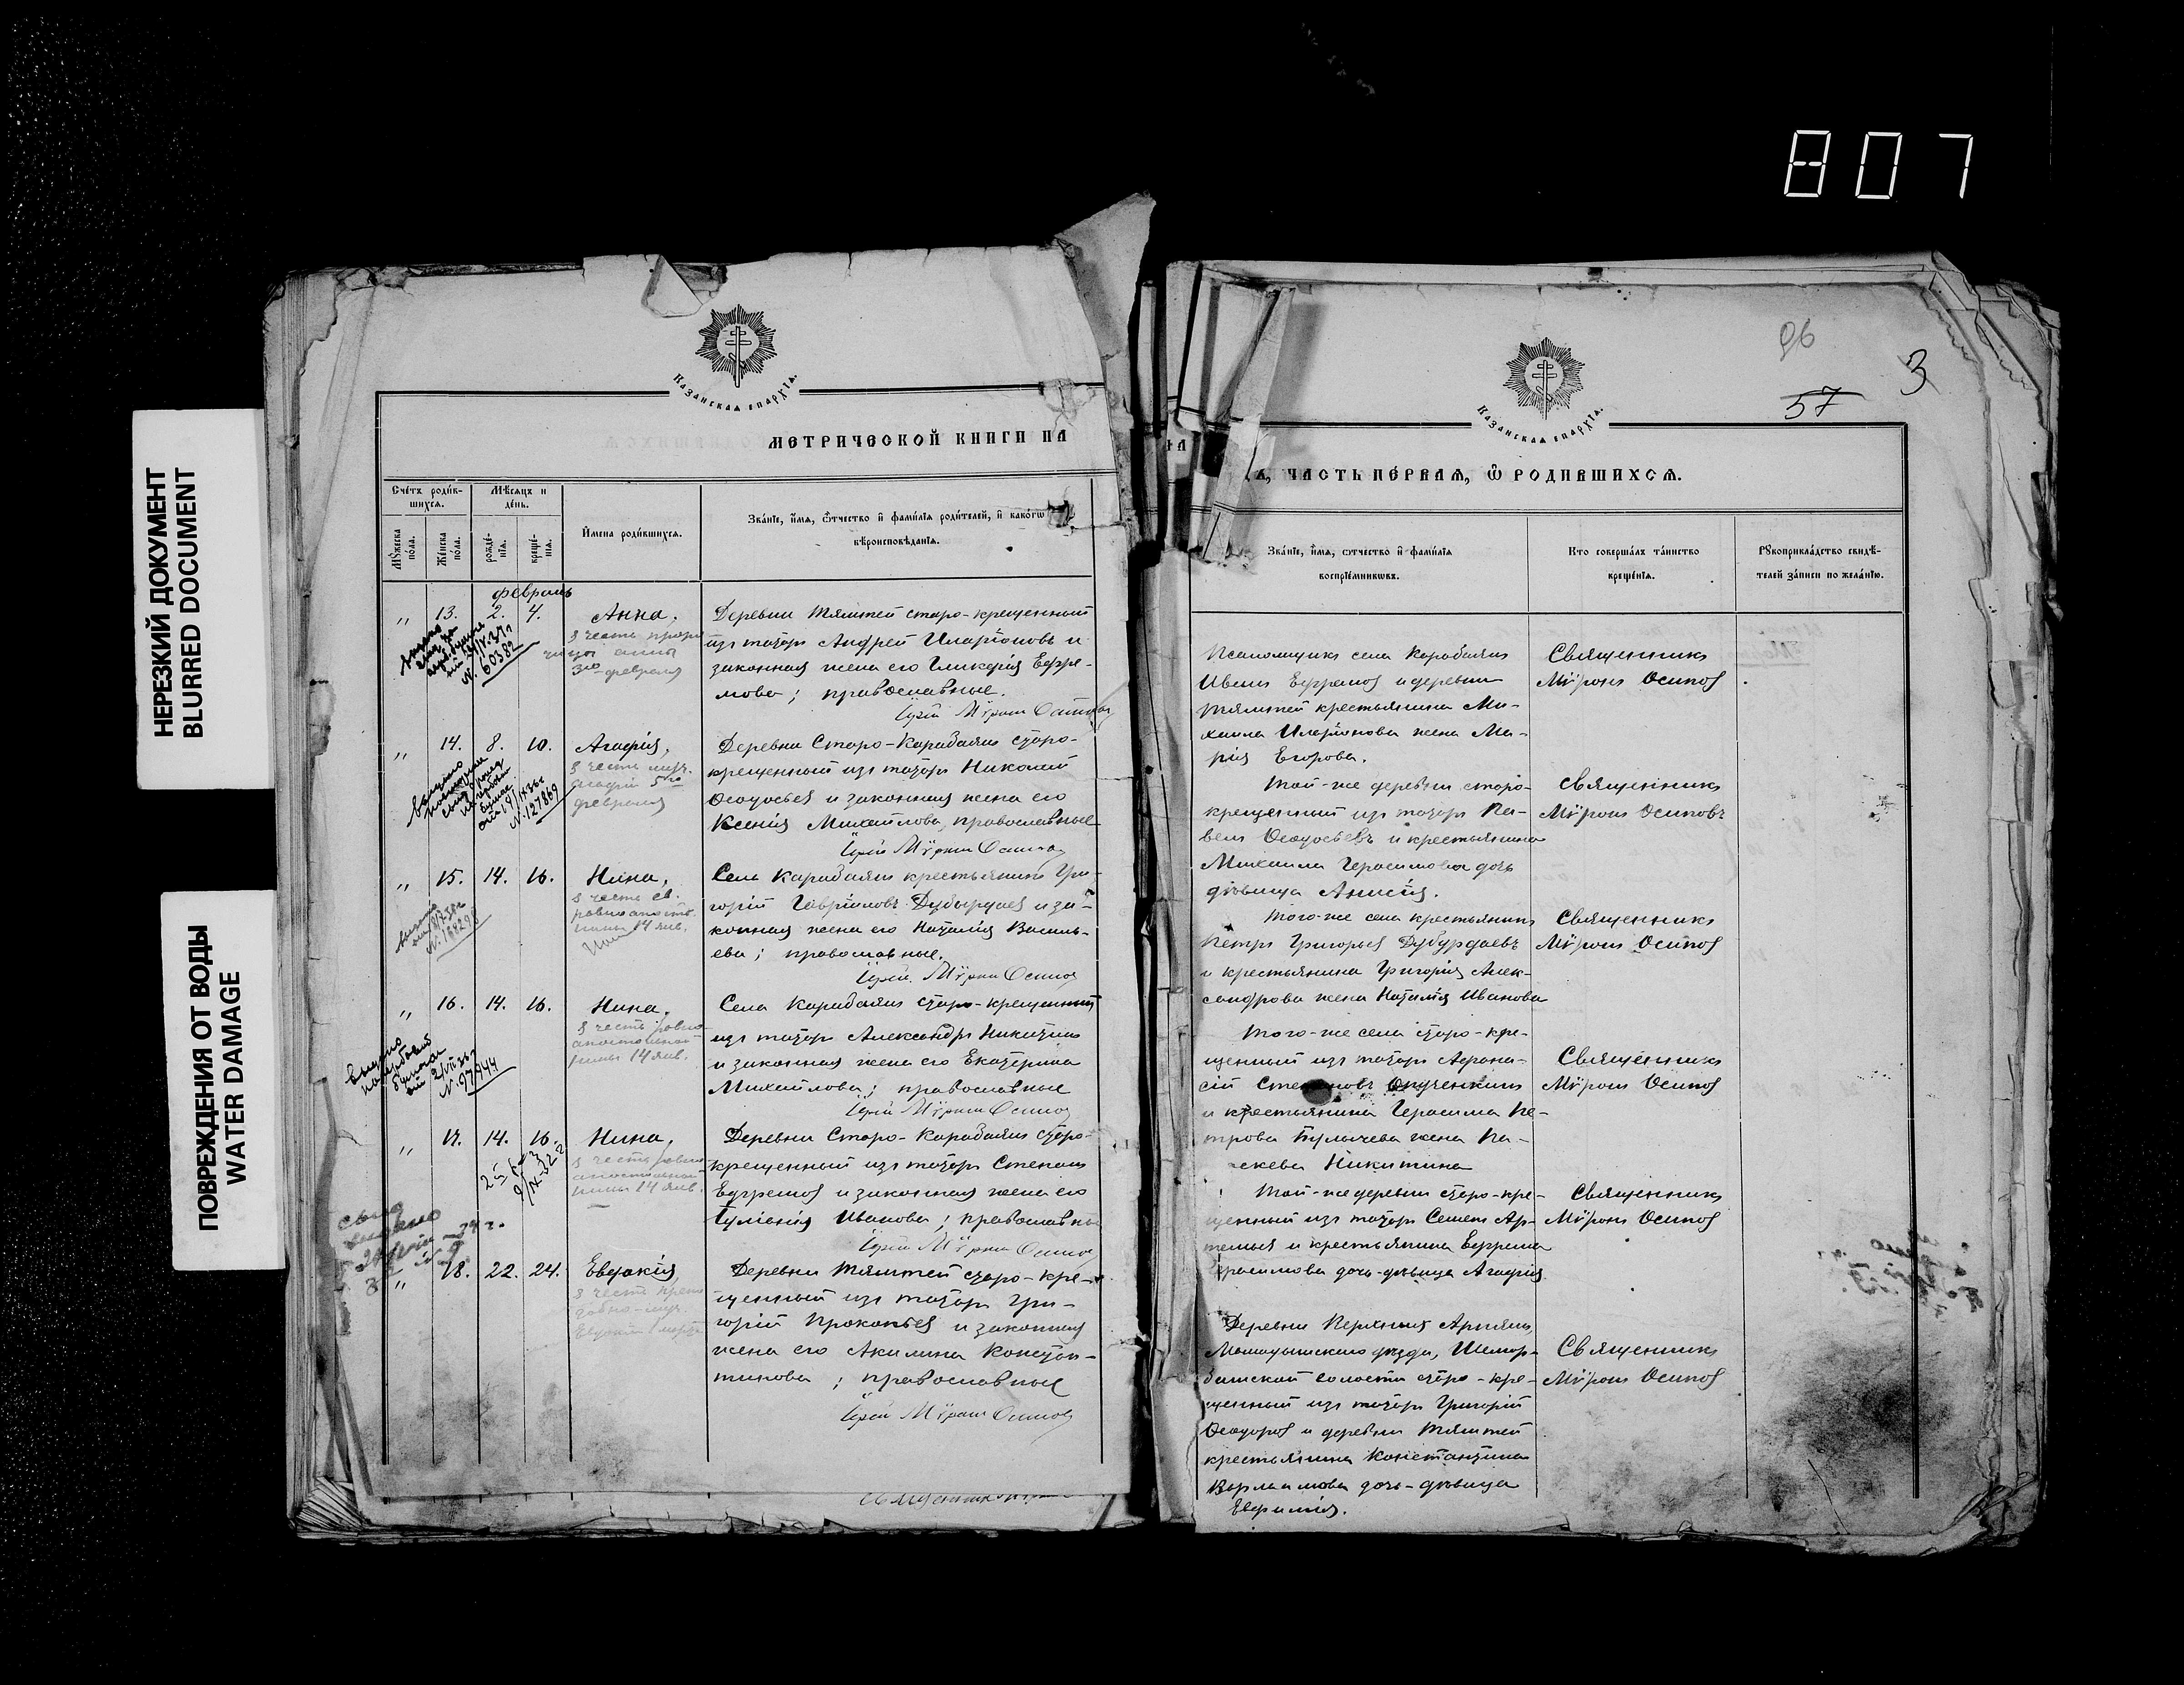 807
НЕРЕЗКИЙ ДОКУМЕНТ
BLURRED DOCUMENT
ПОВРЕЖДЕНИЯ ОТ ВОДЫ
WATER DAMAGE
Казанская епархїя.
МЕТРИЧЕСКОЙ КНИГИ НА
Счетъ родив-
шихся.
Мѣсяцъ и
день.
Мужеска пола.
Женска пола.
рожде-
нїя.
креще-
нїя.
Имена родившихся.
Званїе, имя, отчество и фамилїя родителей, и какогω
вѣроисповѣданїя.
февраль
„ 13. 2. 4. Анна,
в честь проро-
чицы Анны
3го февраля
№ 60382
Деревни Тямтей старо-крещенный
изъ татаръ Андрей Иларіоновъ и
законная жена его Гликерія Ефре-
мова; православные.
Іерей Мѵронъ Осиповъ
„ 14. 8. 10. Агафія,
в честь муч.
Агафіи 5го
февраля
№ 127869
Деревни Старо-Карабаянъ старо-
крещенный изъ татаръ Николай
Ѳеодосьевъ и законная жена его
Ксенія Михайлова, православные
Іерей Мѵронъ Осиповъ
„ 15. 14. 16. Нина,
в честь св.
равноапост.
Нины 14 янв.
Села Карабаянъ крестьянинъ Гри-
горій Гавріиловъ Дубырдаевъ и за-
конная жена его Наталія Василь-
ева; православные.
Іерей Мѵронъ Осиповъ
„ 16. 14. 16. Нина,
в честь равно-
апостольной
Нины 14 янв.
№ 97944
Села Карабаянъ старо-крещенный
изъ татаръ Александръ Никитинъ
и законная жена его Екатерина
Михайлова; православные
Іерей Мѵронъ Осиповъ
„ 17. 14. 16. Нина,
в честь равно-
апостольной
Нины 14 янв.
Деревни Старо-Карабаянъ старо-
крещенный изъ татаръ Степанъ
Ефремовъ и законная жена его
Гуліанія Иванова; православны
Іерей Мѵронъ Осиповъ
„ 18. 22. 24. Евдокія,
в честь препо
добно-муч.
Евдокіи 1 марта
Деревни Тямтей старо-кре-
щенный изъ татаръ Гри-
горій Прокопьевъ и законная
жена его Акилина Констан-
тинова; православные
Іерей Мѵронъ Осиповъ
96
57
3
Казанская епархїя.
Я, ЧАСТЬ ПЕРВАЯ, Ѡ РОДИВШИХСЯ.
Званїе, имя, отчество и фамилїя
воспрїемниковъ.
Кто совершалъ таинство
крещенїя.
Рукоприкладство свидѣ-
телей записи по желанїю.
Псаломщикъ села Карабаянъ
Иванъ Ефремовъ и деревни
Тямтей крестьянина Ми-
хаила Иларіонова жена Ма-
рія Егорова.
Священникъ
Мѵронъ Осиповъ
Той-же деревни старо-
крещенный изъ татаръ Па-
велъ Ѳеодосьевъ и крестьянина
Михаила Герасимова дочь
дѣвица Анисія.
Священникъ
Мѵронъ Осиповъ
Того-же села крестьянинъ
Петръ Григорьевъ Дубурдаевъ
и крестьянина Григорія Алек-
сандрова жена Наталія Иванова
Священникъ
Мѵронъ Осиповъ
Того-же села старо-кре-
щенный изъ татаръ Афана-
сій Степановъ
и крестьянина Герасима Пе-
трова жена Па-
скева Никитина
Священникъ
Мѵронъ Осиповъ
Той-же деревни старо-кре-
щенный изъ татаръ Семенъ Ар-
темьевъ и крестьянина Ефрема
Герасимова дочь-дѣвица Агафія
Священникъ
Мѵронъ Осиповъ
Деревни Арняшъ,
Мамадышскаго уѣзда, Шемор-
банской волости старо-кре-
щенный изъ татаръ Григорій
Ѳеодоровъ и деревни Тямтей
крестьянина Константина
Варлаамова дочь-дѣвица
Евфимія.
Священникъ
Мѵронъ Осиповъ